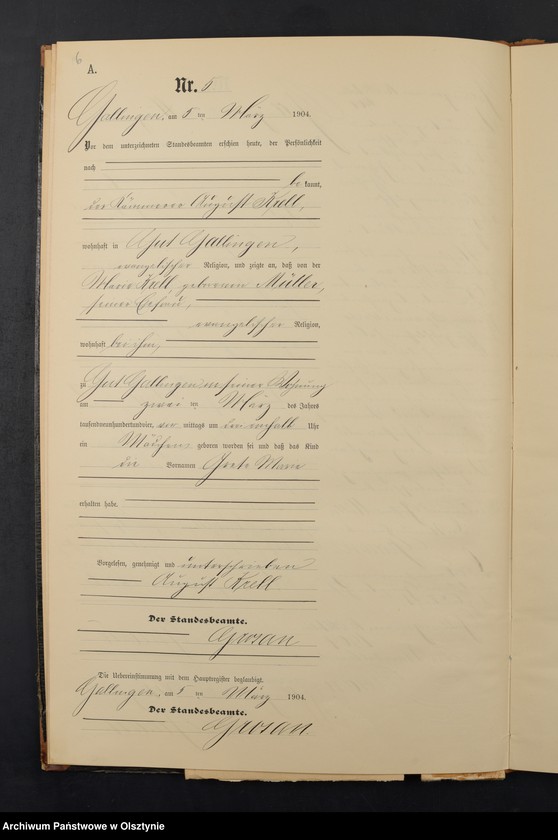 6
A.
Nr. 5
Gallingen, am 5 ten März 1904.
Vor dem unterzeichneten Standesbeamten erschien heute, der Persönlichkeit
nach
be kannt,
der Kämmerer August Krell,
wohnhaft in Gut Gallingen,
evangelischer Religion, und zeigte an, daß von der
Marie Krell geborenen Müller,
seiner Ehefrau,
evangelischer Religion,
wohnhaft bei ihm,
zu Gut Gallingen in seiner Wohnung
am zwei ten März des Jahres
tausendneunhundertundvier, vor mittags um Uhr
ein Mädchen geboren worden sei und daß das Kind
die Vornamen Marie
erhalten habe.
Vorgelesen, genehmigt und unterschrieben
August Krell
Der Standesbeamte.
Grosan
Die Uebereinstimmung mit dem Hauptregister beglaubigt.
Gallingen, am 5 ten März 1904.
Der Standesbeamte.
Grosan
Archiwum Państwowe w Olsztynie